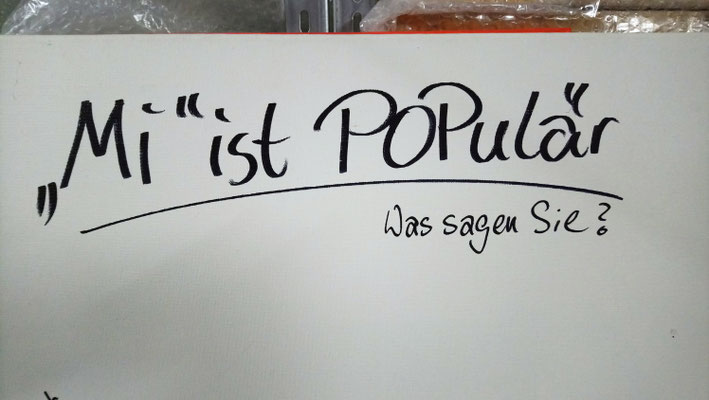 „Mi“ ist POPulär
Was sagen Sie?